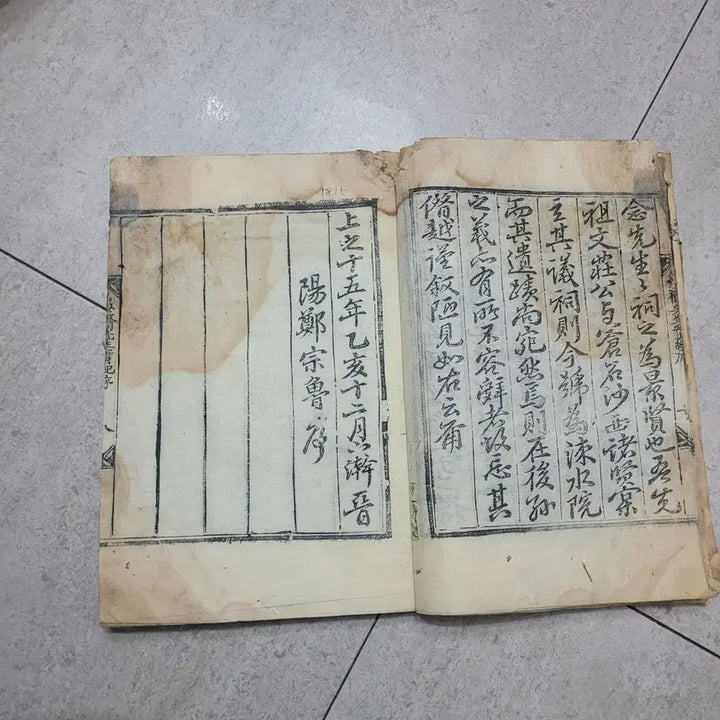 念先生〻祠之為景賢也吾先
祖文莊公与蒼石沙西諸賢寔
主其議祠則今號為涑水院
而其遺蹟尚宛然焉則在後孫
之義亦有所不容辭者故忘其
僭越謹叙陋見如右云爾
1815
上之十五年乙亥十二月下澣晋
陽鄭宗魯序